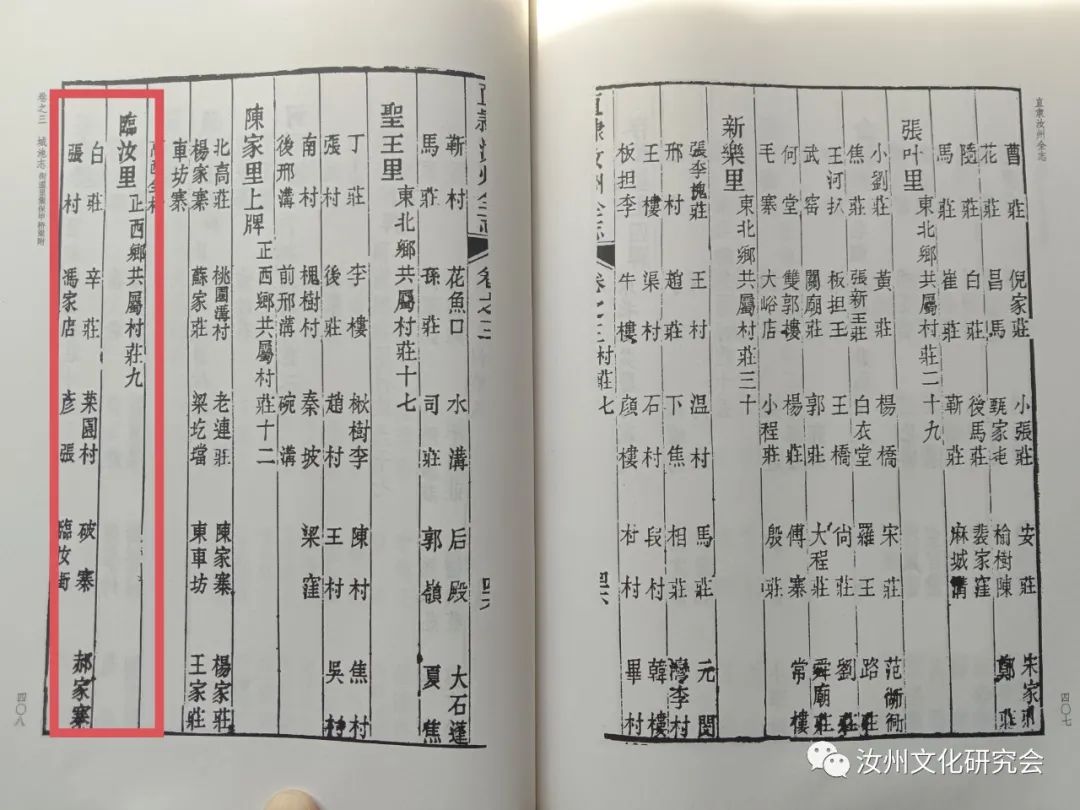 直隸汝州全志
曹莊 倪家莊 小張莊 安莊 朱家莊
花莊 昌馬 甄家莊 榆樹陳 鄭莊
陸莊 白莊 後馬莊 裴家窪
馬莊 崔莊 靳莊 麻城
張叶里 東北鄉共屬村莊二十九
小劉莊 黃莊 楊橋 宋莊 范衚衕
焦莊 張新王莊 白衣堂 羅王 路莊
王河扒 板担王 王橋 尙莊 劉莊
武窑 關廟莊 郭莊 大程莊 舜廟莊
何堂 雙郭樓 楊莊 傅寨 常樓
毛寨 大峪店 小程莊 殷莊
新樂里 東北鄉共屬村莊三十
張李槐莊 王村 温村 馬莊 元閔
邢村 趙莊 下焦 相莊 灣李村
王樓 渠村 石村 段村 韓樓
板担李 牛樓 顔樓 村村 畢村
直隸汝州全志 卷之三 村莊 七
四〇七
直隸汝州全志 卷之三
靳村 花魚口 水溝 后殿 大石蓬
馬莊 孫莊 司莊 郭嶺 夏焦
聖王里 東北鄉共屬村莊十七
丁莊 李樓 楸樹李 陳村 焦村
張村 後莊 趙村 王村 吳村
南村 槐樹村 秦坡 梁窪
後邢溝 前邢溝 碗溝
陳家里上牌 正西鄉共屬村莊十二
北高莊 桃園溝村 老連莊 陳家寨 楊家莊
楊家寨 蘇家莊 梁圪壋 東車坊 王家莊
車坊寨
臨汝里 正西鄉共屬村莊九
白莊 辛莊 菜園村 破寨 郝家寨
張村 馮家店 彥張 臨汝街
卷之三 城池志
四〇八
汝州文化研究会